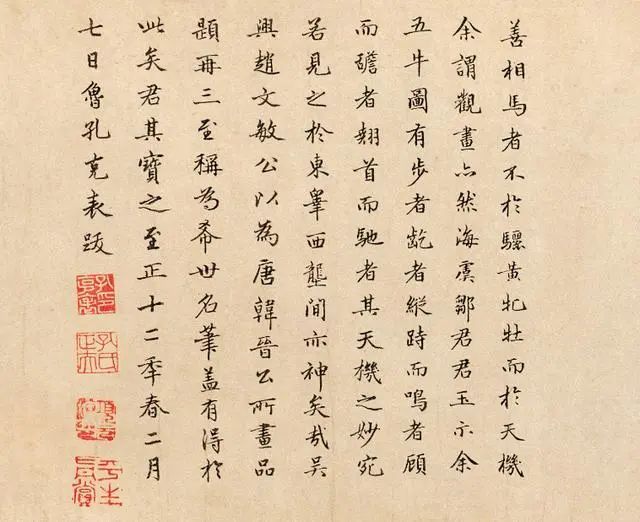 善相馬者不於驪黃牝牡而於天機
余謂觀畫亦然海虞鄒君君玉示余
五牛圖有步者齕者縱跱而鳴者顧
而䑛者翹首而馳者其天機之妙宛
若見之於東皋西壟間亦神矣哉吴
興趙文敏公以為唐韓晉公所畫品
題再三至稱為希世名筆盖有得於
此矣君其寶之至正十二年春二月
七日魯孔克表跋